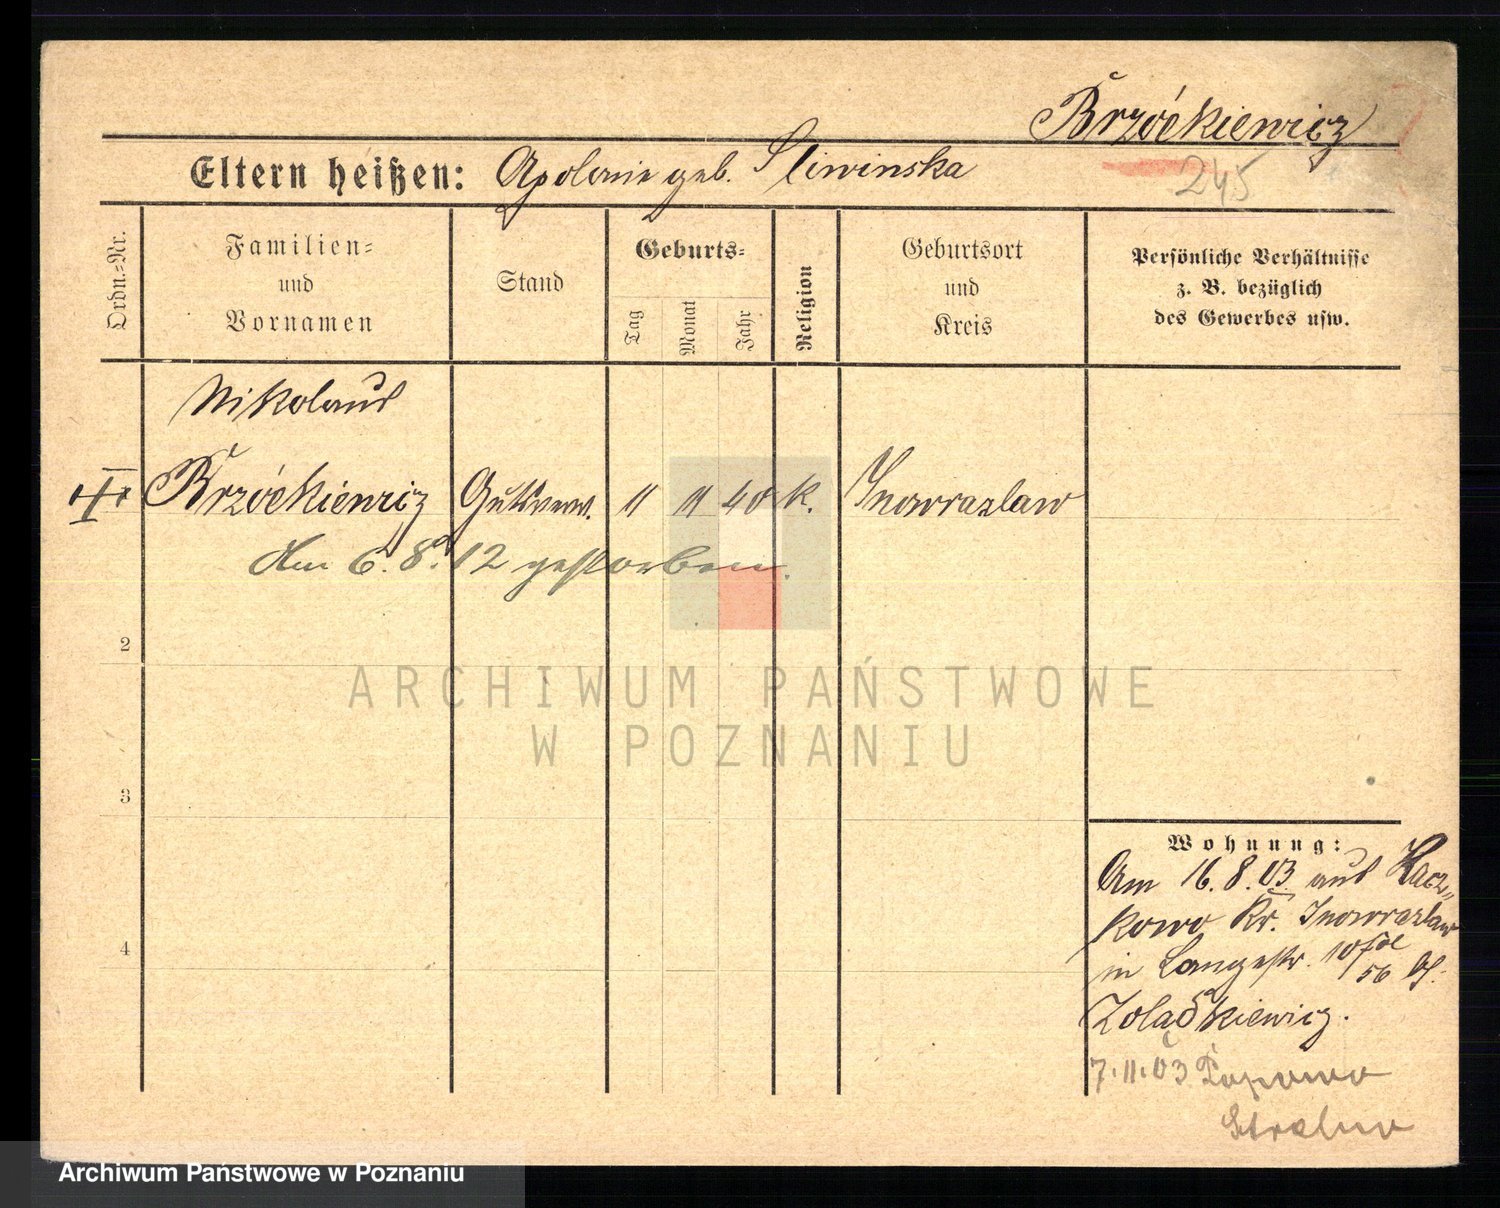 Brzóckiewicz
245
Eltern heißen: Apolonie geb. Sliwinska
Ordn.-Nr.
Familien-
und
Vornamen
Stand
Geburts-
Tag
Monat
Jahr
Religion
Geburtsort
und
Kreis
Persönliche Verhältnisse
z. B. bezüglich
des Gewerbes usw.
Nikolaus
Brzóckiewicz Gutsverw. 11 11 40 k. Inowrazlaw
Am 6. 8. 12 gestorben.
2
ARCHIWUM PAŃSTWOWE
W POZNANIU
3
4
Wohnung:
Am 16. 8. 03 aus Kacz-
kowo Kr. Inowrazlaw
in Langestr. 10
56
7. 11. 03 Popowo
Archiwum Państwowe w Poznaniu